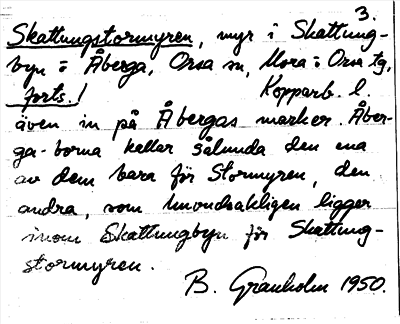 3.
Skattungstormyren, myr i Skattung-
byn o Åberga, Orsa sn, Mora o Orsa tg,
forts. / Kopparb. l.
även in på Åbergas marker. Åber-
ga-borna kallar sålunda den ena
av dem bara för Stormyren, den
andra, som huvudsakligen ligger
inom Skattungbyn för Skattung-
stormyren.
B. Granholm 1950.